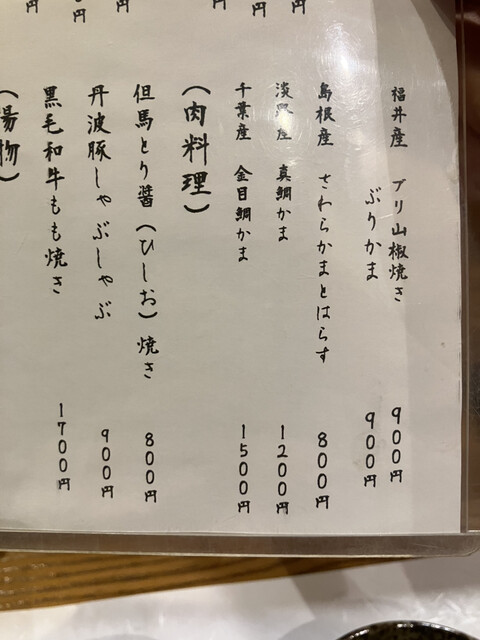 福井産 ブリ山椒焼き 900円
ぶりかま 900円
島根産 さわらかまとはらす 800円
淡路産 真鯛かま 1200円
千葉産 金目鯛かま 1500円
(肉料理)
但馬とり醤(ひしお)焼き 800円
丹波豚しゃぶしゃぶ 900円
黒毛和牛もも焼き 1700円
(揚物)
円
円
円
円
円
円